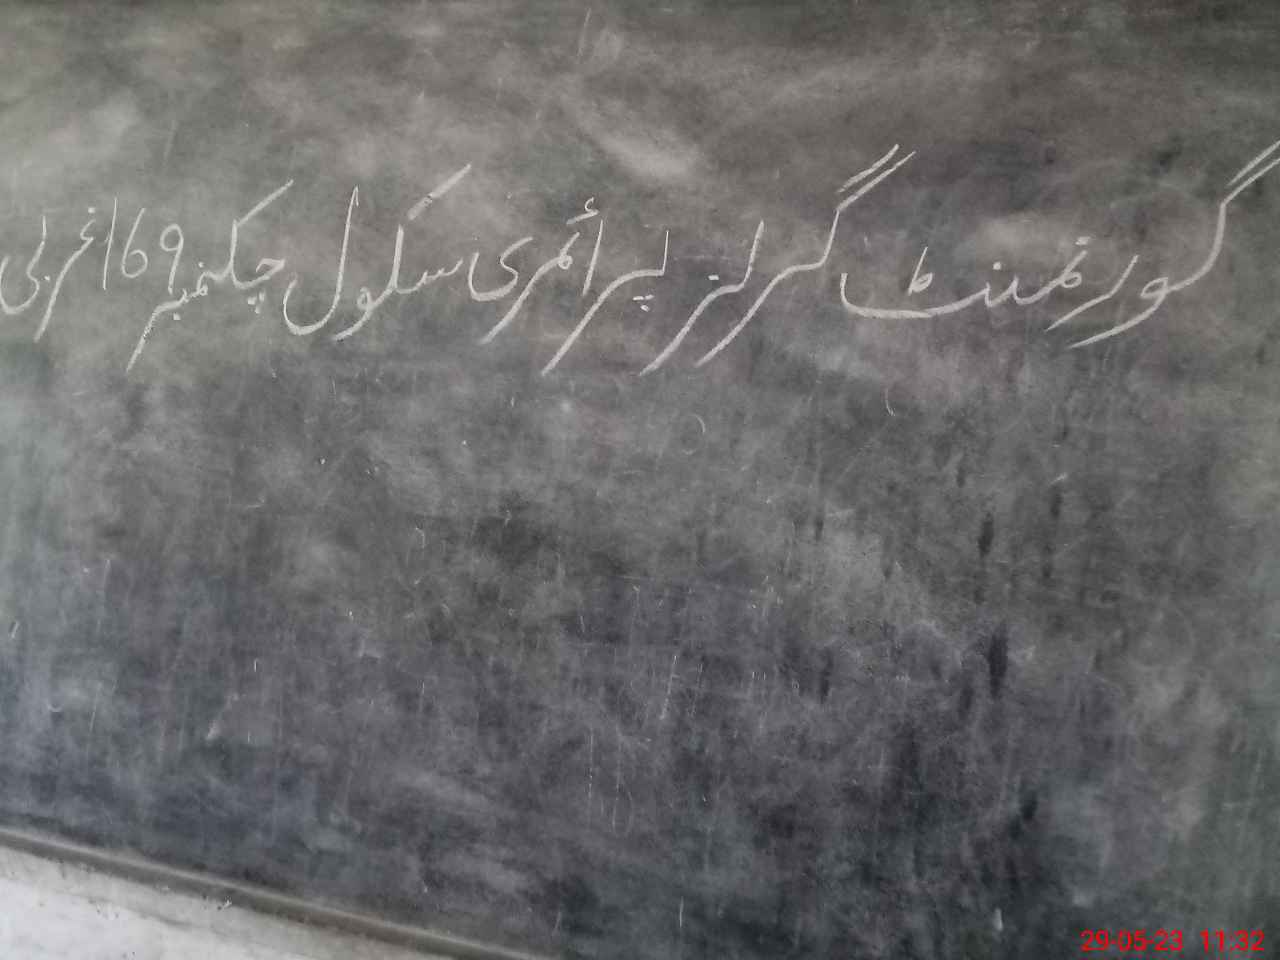 گورنمنٹ گرلز پرائمری سکول چکنمبر 169 غربی
29-05-23 11:32